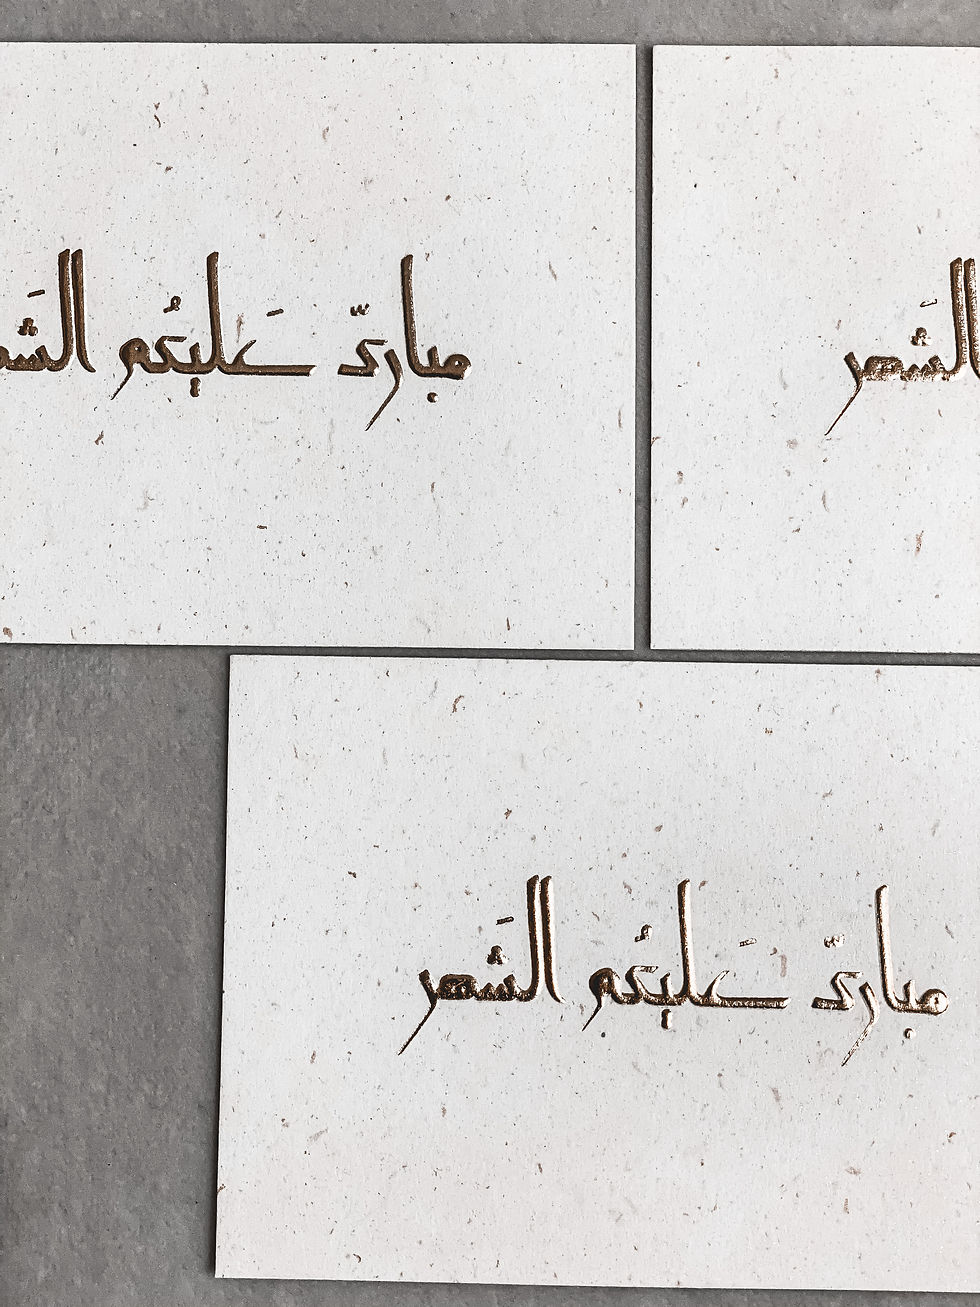 مبارك عَليكُم الشَه
الشَهر
مبارك عَليكُم الشَهر